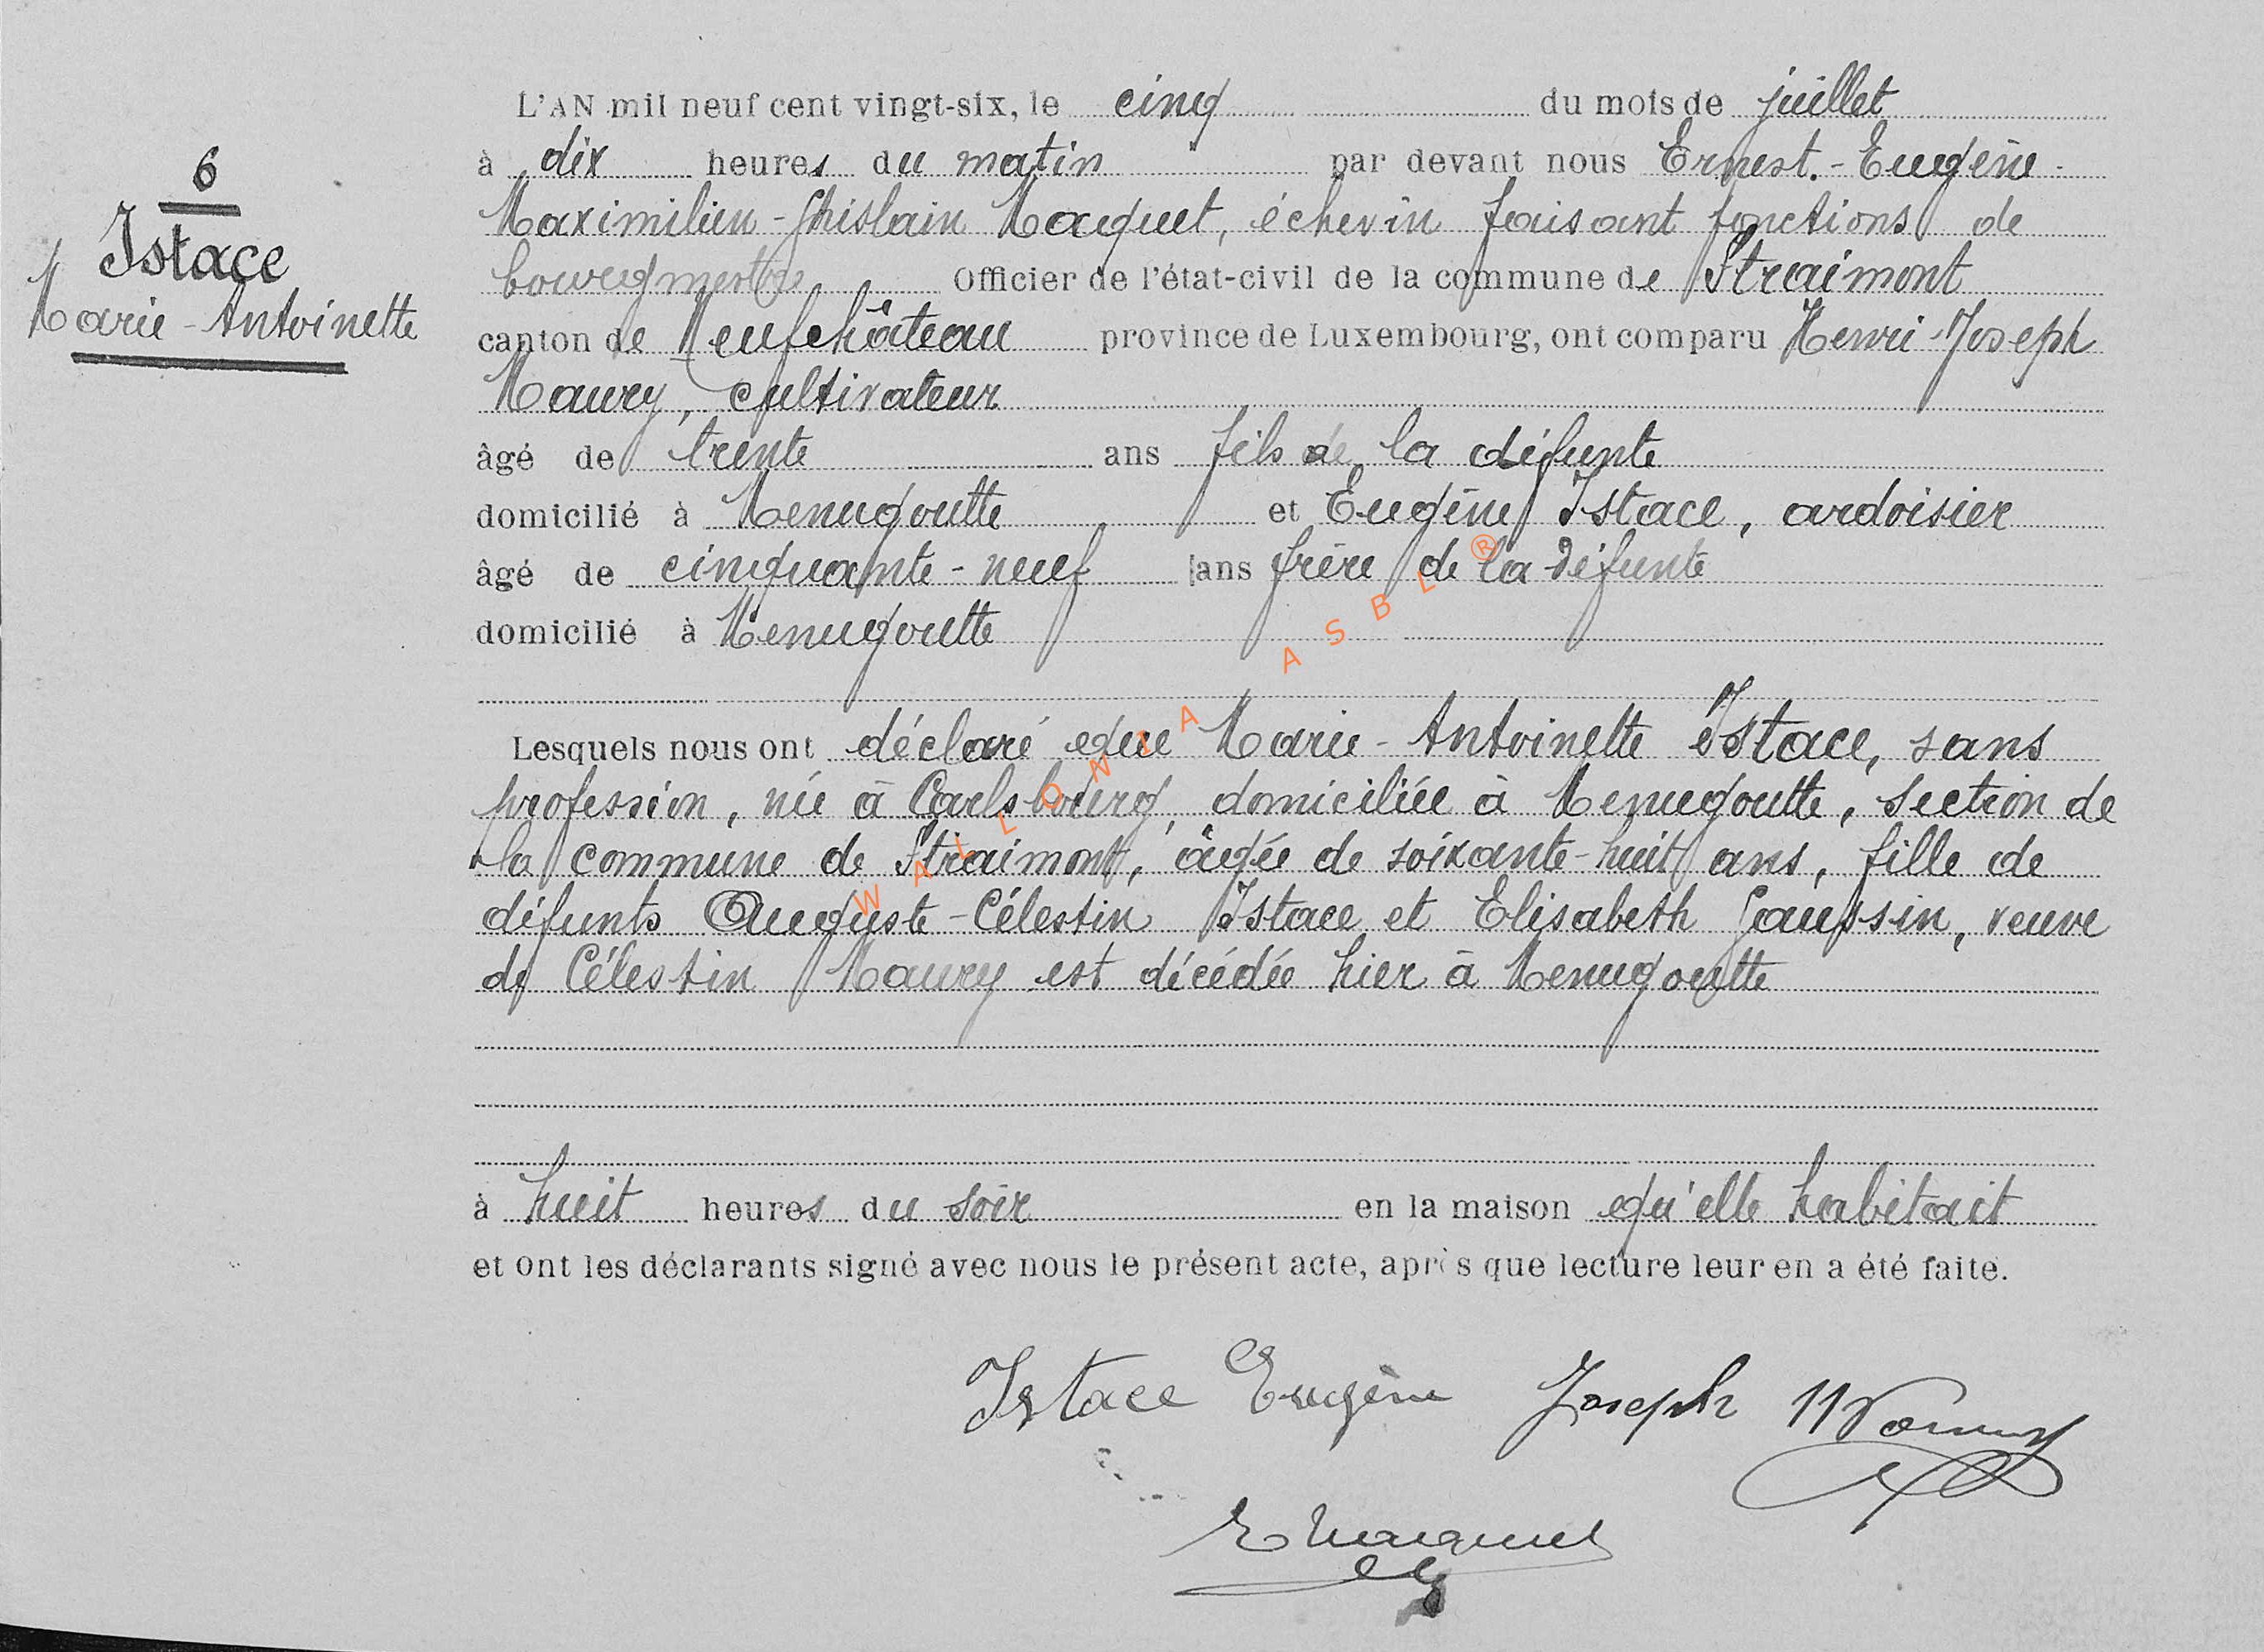 6
Istace
Marie-Antoinette
L'AN mil neuf cent vingt-six, le cinq du mois de juillet
à dix heures du matin par devant nous Ernest.-Eugène-
Maximilien-Ghislain Maquet, échevin faisant fonctions de
bourgmestre Officier de l'état-civil de la commune de Straimont
canton de Neufchâteau province de Luxembourg, ont comparu Henri-Joseph
Maury, cultivateur
âgé de trente ans fils de la défunte
domicilié à Menugoutte et Eugène Istace, ardoisier
âgé de cinquante-neuf ans frère de la défunte
domicilié à Menugoutte
Lesquels nous ont déclaré que Marie-Antoinette Istace, sans
profession, née à Carlsbourg, domiciliée à Menugoutte, section de
la commune de Straimont, âgée de soixante-huit ans, fille de
défunts Auguste-Célestin Istace et Elisabeth Gaussin, veuve
de Célestin Maury est décédée hier à Menugoutte
à huit heures du soir en la maison qu'elle habitait
et ont les déclarants signé avec nous le présent acte, après que lecture leur en a été faite.
Istace Eugène Joseph Maury
E Maquet
WALLONIA ASBL ®